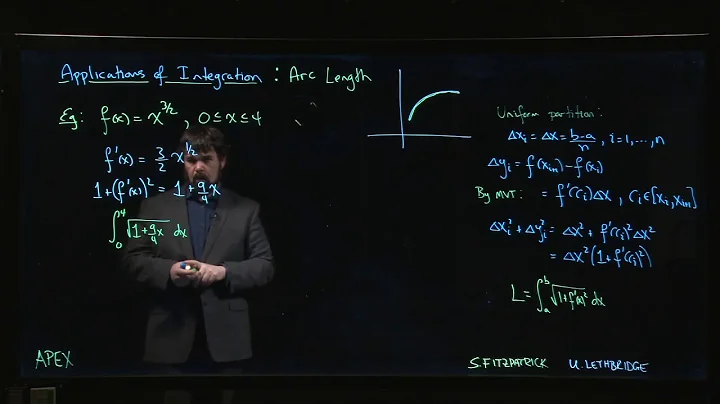 Applications of Integration : Arc Length
Eg: f(x) = x^{3/2}, 0 ≤ x ≤ 4
f'(x) = 3/2 x^{1/2}
1+(f'(x))² = 1 + 9/4 x
∫₀⁴ √(1+9/4 x) dx
Uniform partition:
Δx_i = Δx = (b-a)/n, i=1,...,n
Δy_i = f(x_{i+1}) - f(x_i)
By MVT: = f'(c_i)Δx, c_i∈[x_i, x_{i+1}]
Δx_i² + Δy_i² = Δx² + f'(c_i)²Δx²
= Δx²(1+f'(c_i)²)
L = ∫_a^b √(1+f'(x)²) dx
APEX
S. FITZPATRICK U. LETHBRIDGE